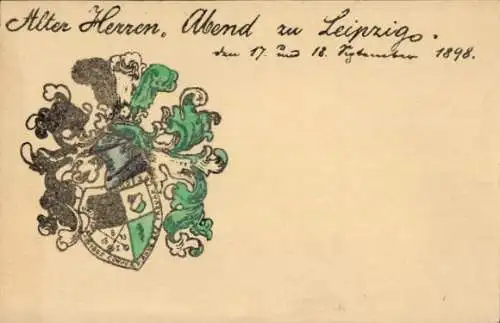 Alter Herren, Abend zu Leipzig.
den 17. und 18. September 1898.